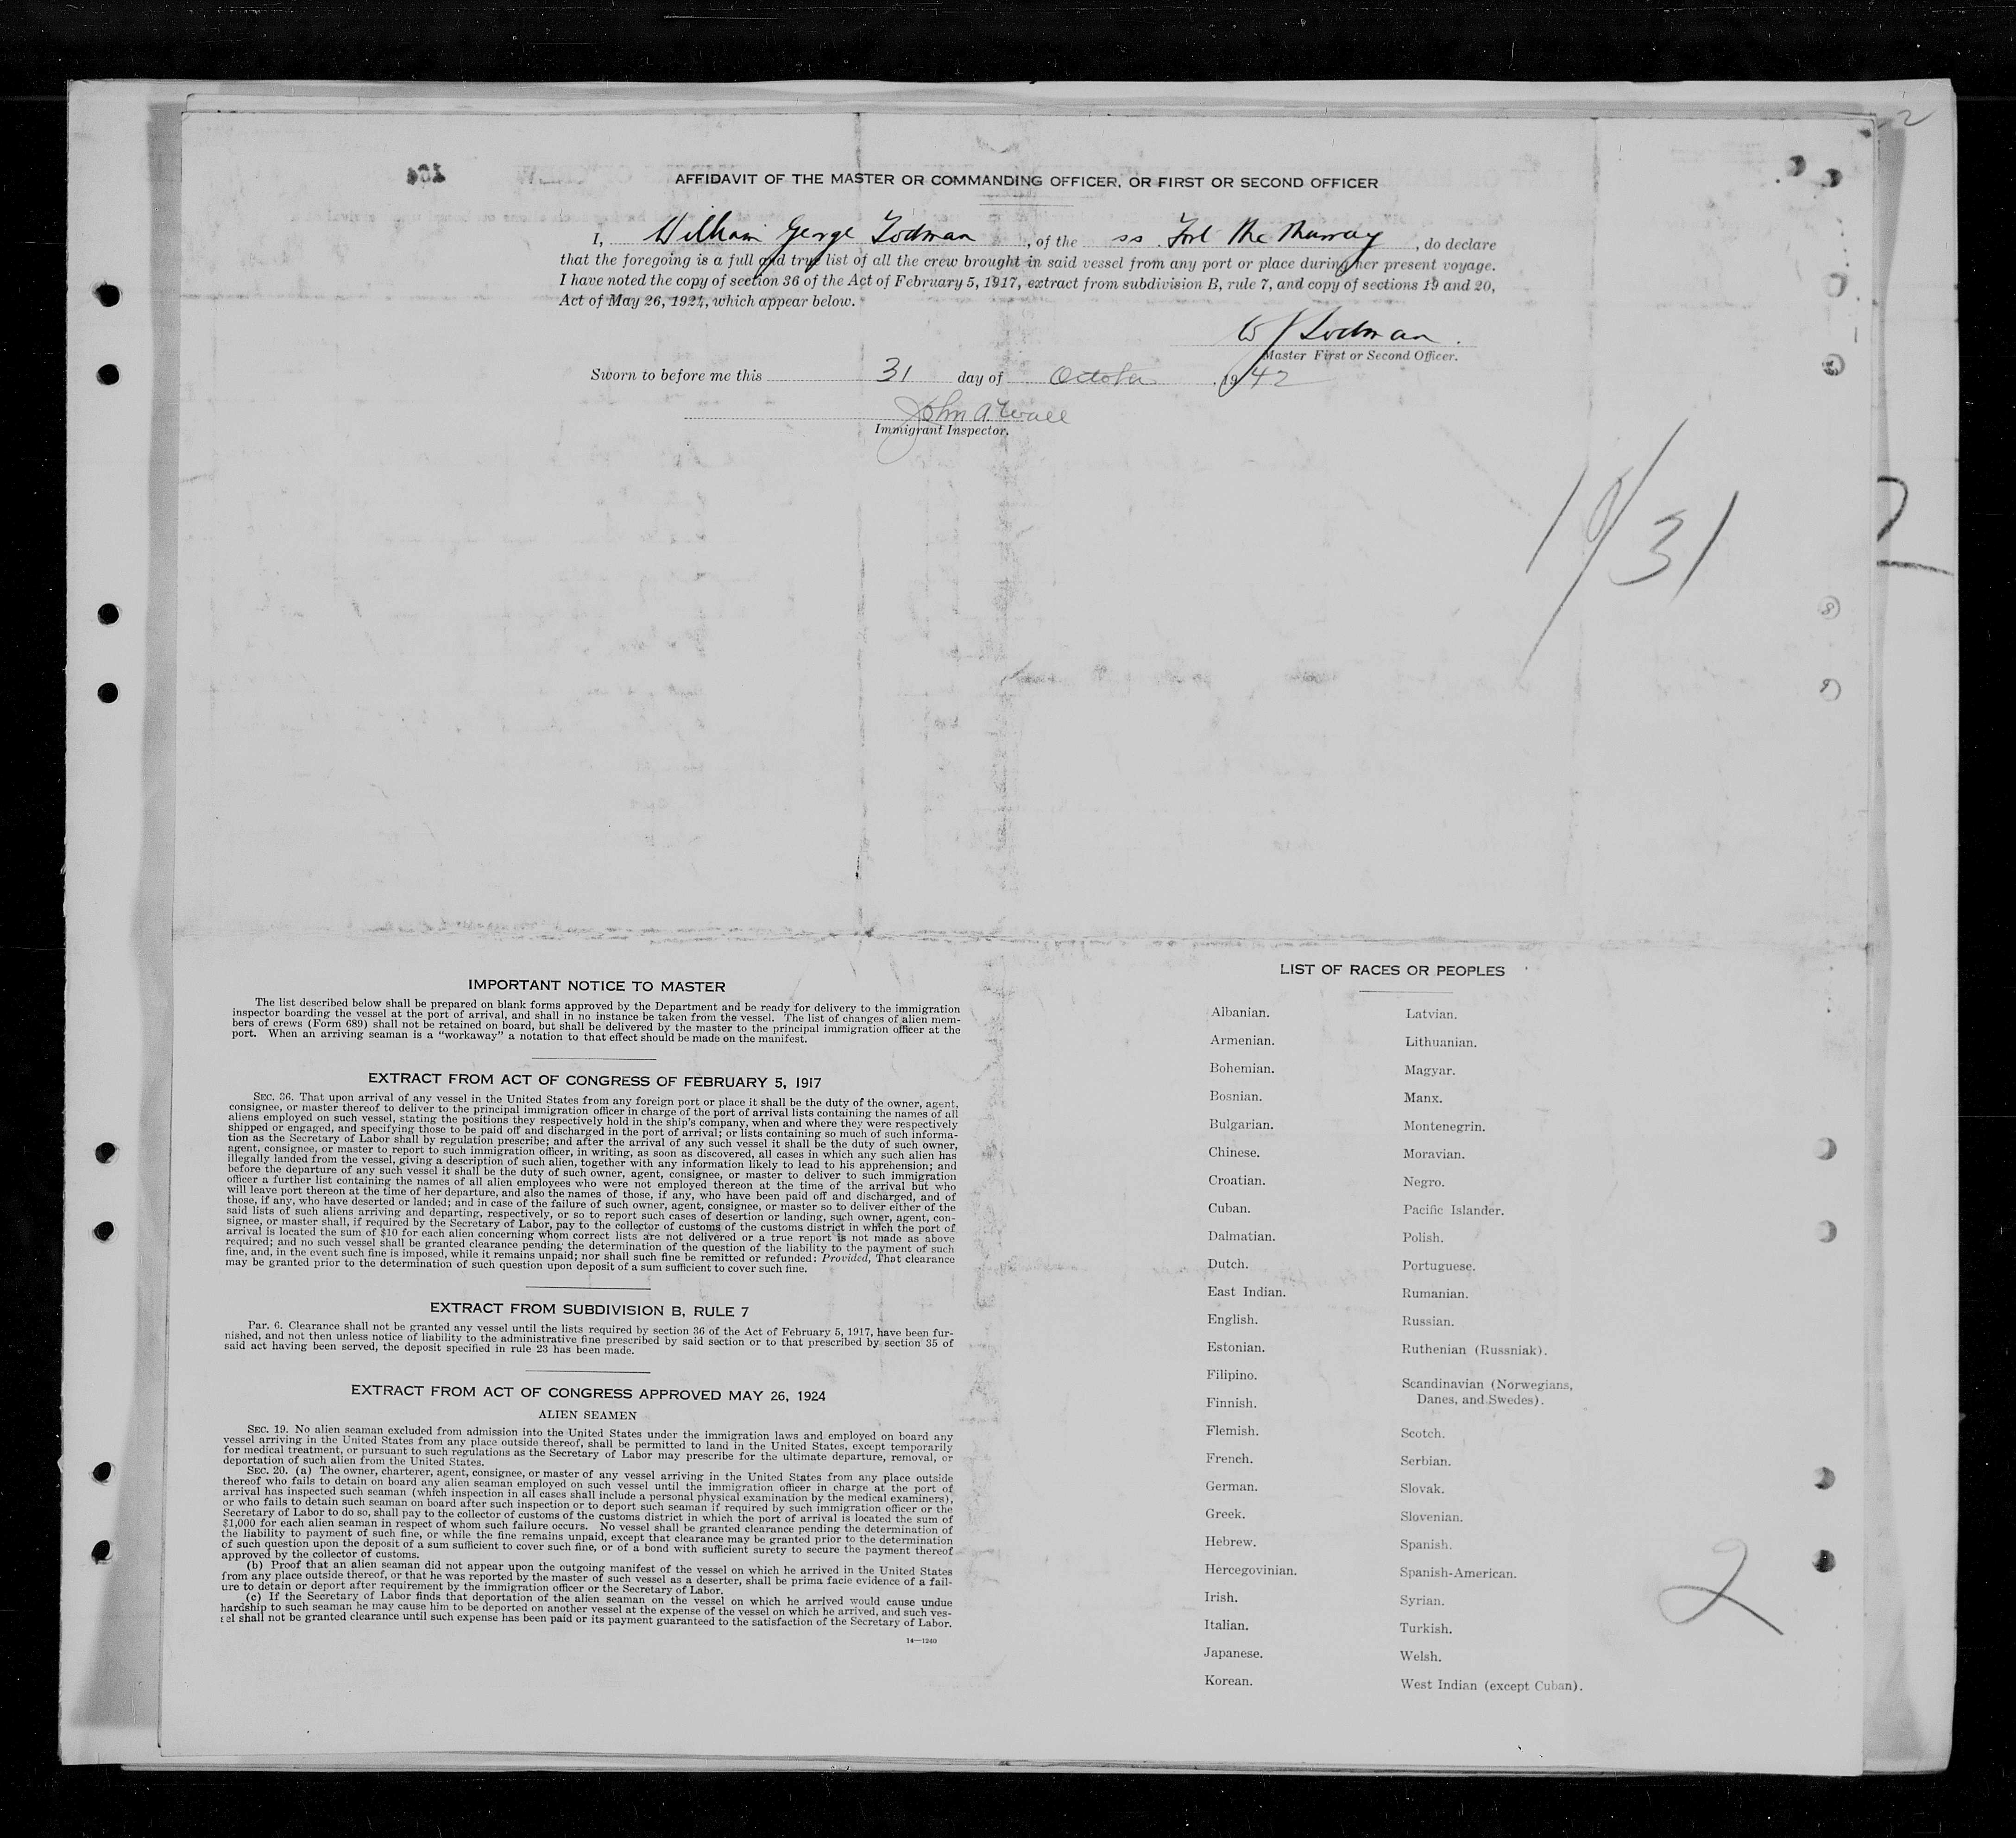 AFFIDAVIT OF THE MASTER OR COMMANDING OFFICER, OR FIRST OR SECOND OFFICER
I, William George Todman, of the ss Fort Mc Murray, do declare
that the foregoing is a full and true list of all the crew brought in said vessel from any port or place during her present voyage.
I have noted the copy of section 36 of the Act of February 5, 1917, extract from subdivision B, rule 7, and copy of sections 19 and 20,
Act of May 26, 1924, which appear below.
W G Todman.
Master First or Second Officer.
Sworn to before me this 31 day of October, 1942
John A. Wall
Immigrant Inspector.
10/31
IMPORTANT NOTICE TO MASTER
The list described below shall be prepared on blank forms approved by the Department and be ready for delivery to the immigration
inspector boarding the vessel at the port of arrival, and shall in no instance be taken from the vessel. The list of changes of alien mem-
bers of crews (Form 689) shall not be retained on board, but shall be delivered by the master to the principal immigration officer at the
port. When an arriving seaman is a "workaway" a notation to that effect should be made on the manifest.
EXTRACT FROM ACT OF CONGRESS OF FEBRUARY 5, 1917
SEC. 36. That upon arrival of any vessel in the United States from any foreign port or place it shall be the duty of the owner, agent,
consignee, or master thereof to deliver to the principal immigration officer in charge of the port of arrival lists containing the names of all
aliens employed on such vessel, stating the positions they respectively hold in the ship's company, when and where they were respectively
shipped or engaged, and specifying those to be paid off and discharged in the port of arrival; or lists containing so much of such informa-
tion as the Secretary of Labor shall by regulation prescribe; and after the arrival of any such vessel it shall be the duty of such owner,
agent, consignee, or master to report to such immigration officer, in writing, as soon as discovered, all cases in which any such alien has
illegally landed from the vessel, giving a description of such alien, together with any information likely to lead to his apprehension; and
before the departure of any such vessel it shall be the duty of such owner, agent, consignee, or master to deliver to such immigration
officer a further list containing the names of all alien employees who were not employed thereon at the time of the arrival but who
will leave port thereon at the time of her departure, and also the names of those, if any, who have been paid off and discharged, and of
those, if any, who have deserted or landed; and in case of the failure of such owner, agent, consignee, or master so to deliver either of the
said lists of such aliens arriving and departing, respectively, or so to report such cases of desertion or landing, such owner, agent, con-
signee, or master shall, if required by the Secretary of Labor, pay to the collector of customs of the customs district in which the port of
arrival is located the sum of $10 for each alien concerning whom correct lists are not delivered or a true report is not made as above
required; and no such vessel shall be granted clearance pending the determination of the question of the liability to the payment of such
fine, and, in the event such fine is imposed, while it remains unpaid; nor shall such fine be remitted or refunded: Provided, That clearance
may be granted prior to the determination of such question upon deposit of a sum sufficient to cover such fine.
EXTRACT FROM SUBDIVISION B, RULE 7
Par. 6. Clearance shall not be granted any vessel until the lists required by section 36 of the Act of February 5, 1917, have been fur-
nished, and not then unless notice of liability to the administrative fine prescribed by said section or to that prescribed by section 35 of
said act having been served, the deposit specified in rule 23 has been made.
EXTRACT FROM ACT OF CONGRESS APPROVED MAY 26, 1924
ALIEN SEAMEN
SEC. 19. No alien seaman excluded from admission into the United States under the immigration laws and employed on board any
vessel arriving in the United States from any place outside thereof, shall be permitted to land in the United States, except temporarily
for medical treatment, or pursuant to such regulations as the Secretary of Labor may prescribe for the ultimate departure, removal, or
deportation of such alien from the United States.
SEC. 20. (a) The owner, charterer, agent, consignee, or master of any vessel arriving in the United States from any place outside
thereof who fails to detain on board any alien seaman employed on such vessel until the immigration officer in charge at the port of
arrival has inspected such seaman (which inspection in all cases shall include a personal physical examination by the medical examiners),
or who fails to detain such seaman on board after such inspection or to deport such seaman if required by such immigration officer or the
Secretary of Labor to do so, shall pay to the collector of customs of the customs district in which the port of arrival is located the sum of
$1,000 for each alien seaman in respect of whom such failure occurs. No vessel shall be granted clearance pending the determination of
the liability to payment of such fine, or while the fine remains unpaid, except that clearance may be granted prior to the determination
of such question upon the deposit of a sum sufficient to cover such fine, or of a bond with sufficient surety to secure the payment thereof
approved by the collector of customs.
(b) Proof that an alien seaman did not appear upon the outgoing manifest of the vessel on which he arrived in the United States
from any place outside thereof, or that he was reported by the master of such vessel as a deserter, shall be prima facie evidence of a fail-
ure to detain or deport after requirement by the immigration officer or the Secretary of Labor.
(c) If the Secretary of Labor finds that deportation of the alien seaman on the vessel on which he arrived would cause undue
hardship to such seaman he may cause him to be deported on another vessel at the expense of the vessel on which he arrived, and such ves-
sel shall not be granted clearance until such expense has been paid or its payment guaranteed to the satisfaction of the Secretary of Labor.
14—1240
LIST OF RACES OR PEOPLES
Albanian.
Armenian.
Bohemian.
Bosnian.
Bulgarian.
Chinese.
Croatian.
Cuban.
Dalmatian.
Dutch.
East Indian.
English.
Estonian.
Filipino.
Finnish.
Flemish.
French.
German.
Greek.
Hebrew.
Hercegovinian.
Irish.
Italian.
Japanese.
Korean.
Latvian.
Lithuanian.
Magyar.
Manx.
Montenegrin.
Moravian.
Negro.
Pacific Islander.
Polish.
Portuguese.
Rumanian.
Russian.
Ruthenian (Russniak).
Scandinavian (Norwegians,
Danes, and Swedes).
Scotch.
Serbian.
Slovak.
Slovenian.
Spanish.
Spanish-American.
Syrian.
Turkish.
Welsh.
West Indian (except Cuban).
2
2
2